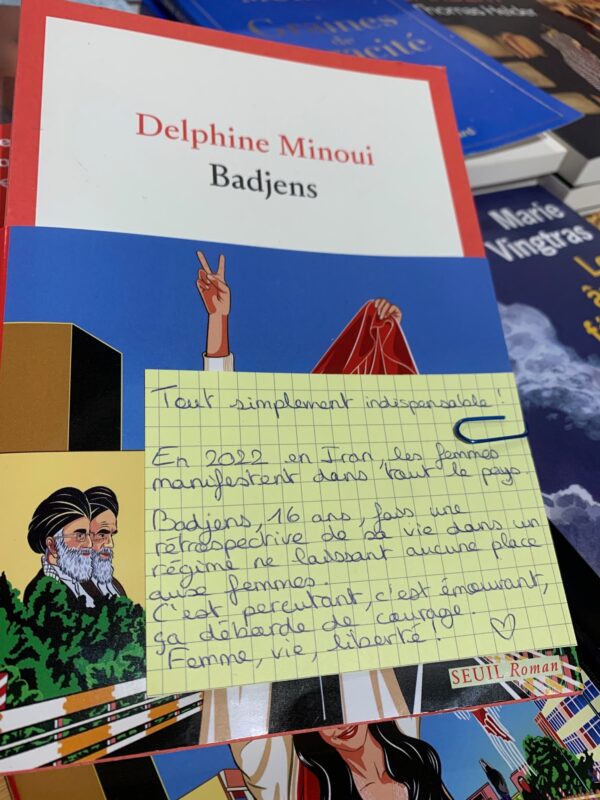 Graines
de
acité
Thomas Helder
Delphine Minoui
Badjens
Marie
Vingtras
Tout simplement indispensable !
En 2022 en Iran, les femmes
manifestent dans tout le pays.
Badjens, 16 ans, fais une
rétrospective de sa vie dans un
régime ne laissant aucune place
aux femmes.
C'est percutant, c'est émouvant,
ça déborde de courage.
Femme, vie, liberté.
SEUIL Roman